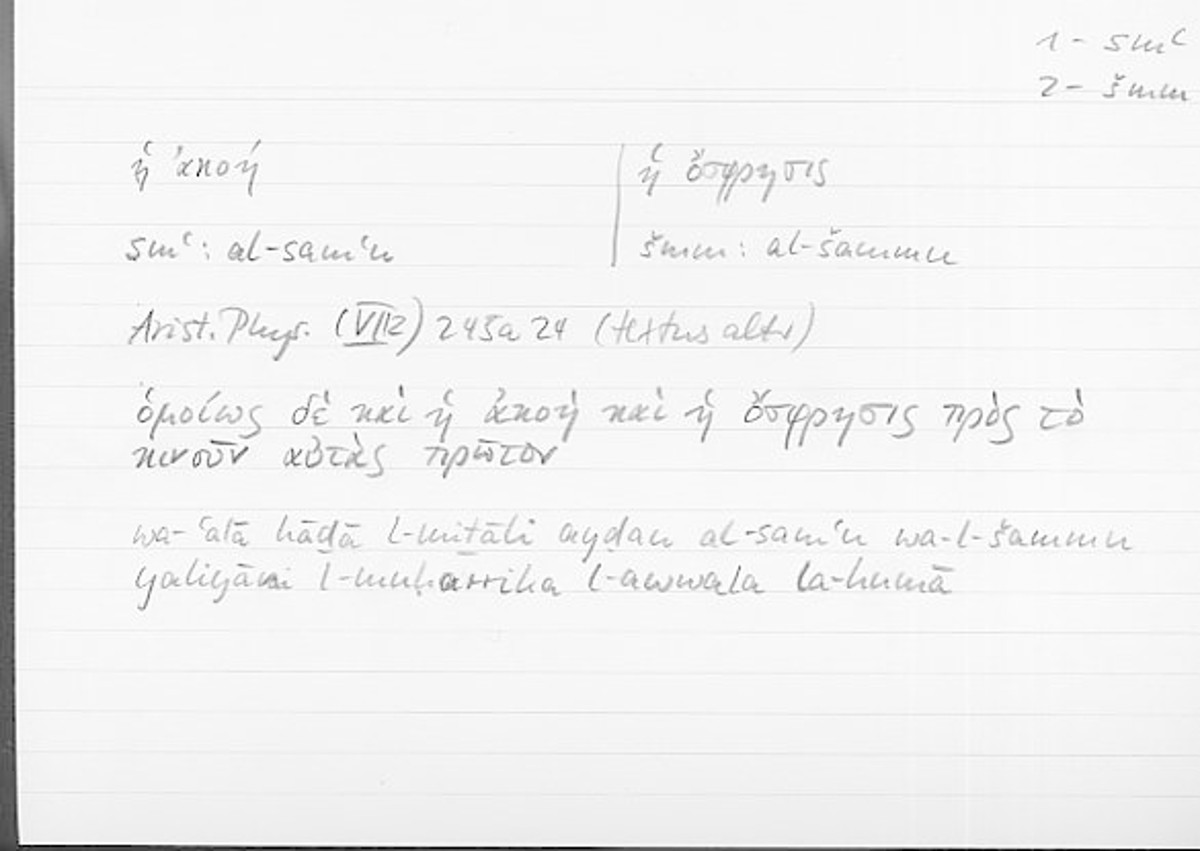 1 - smʿ
2 - šmm
ἡ ἀκοή | ἡ ὄσφρησις
smʿ: al-samʿu | šmm: al-šammu
Arist. Phys. (VII2) 245a 24 (textus alter)
ὁμοίως δὲ καὶ ἡ ἀκοὴ καὶ ἡ ὄσφρησις πρὸς τὸ
κινοῦν αὐτὰς πρῶτον
wa-ʿalā hāḏā l-miṯāli ayḍan al-samʿu wa-l-šammu
yaliyāni l-muḥarrika l-awwala la-humā